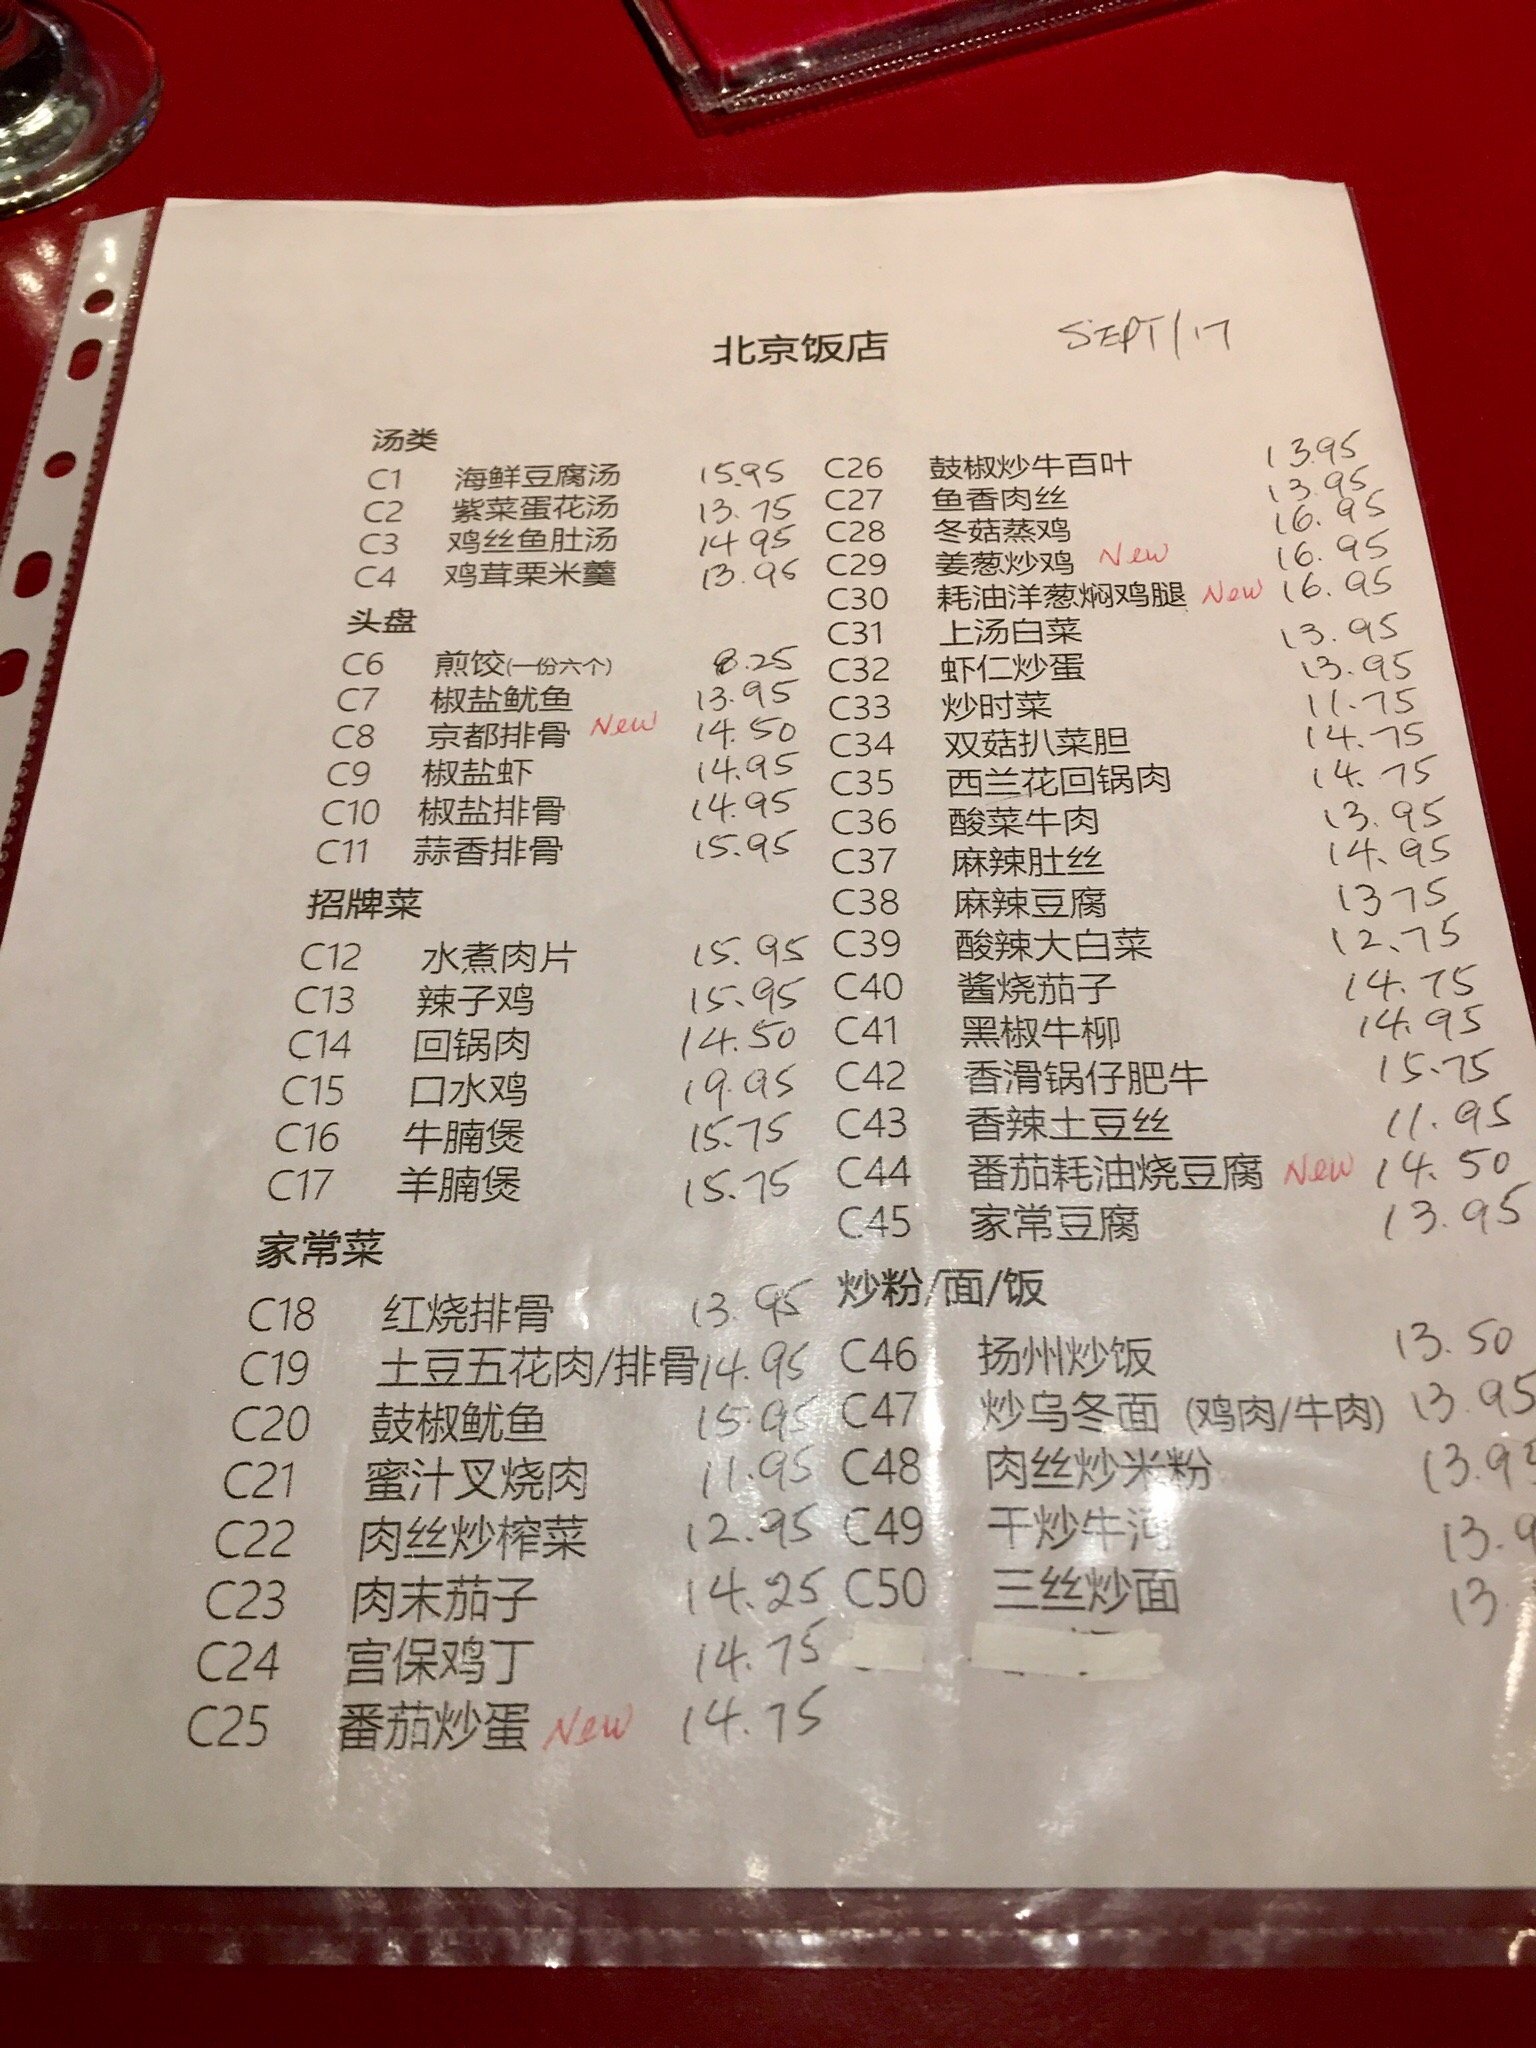 北京饭店
SEPT/17
汤类
C1 海鲜豆腐汤 15.95
C2 紫菜蛋花汤 13.75
C3 鸡丝鱼肚汤 14.95
C4 鸡茸栗米羹 13.95
头盘
C6 煎饺(一份六个) 8.25
C7 椒盐鱿鱼 13.95
C8 京都排骨 New 14.50
C9 椒盐虾 14.95
C10 椒盐排骨 14.95
C11 蒜香排骨 15.95
招牌菜
C12 水煮肉片 15.95
C13 辣子鸡 15.95
C14 回锅肉 14.50
C15 口水鸡 19.95
C16 牛腩煲 15.75
C17 羊腩煲 15.75
家常菜
C18 红烧排骨 13.95
C19 土豆五花肉/排骨 14.95
C20 鼓椒鱿鱼 15.95
C21 蜜汁叉烧肉 11.95
C22 肉丝炒榨菜 12.95
C23 肉末茄子 14.25
C24 宫保鸡丁 14.75
C25 番茄炒蛋 New 14.75
C26 鼓椒炒牛百叶 13.95
C27 鱼香肉丝 13.95
C28 冬菇蒸鸡 16.95
C29 姜葱炒鸡 New 16.95
C30 耗油洋葱焖鸡腿 New 16.95
C31 上汤白菜 13.95
C32 虾仁炒蛋 13.95
C33 炒时菜 11.75
C34 双菇扒菜胆 14.75
C35 西兰花回锅肉 14.75
C36 酸菜牛肉 13.95
C37 麻辣肚丝 14.95
C38 麻辣豆腐 13.75
C39 酸辣大白菜 12.75
C40 酱烧茄子 14.75
C41 黑椒牛柳 14.95
C42 香滑锅仔肥牛 15.75
C43 香辣土豆丝 11.95
C44 番茄耗油烧豆腐 New 14.50
C45 家常豆腐 13.95
炒粉/面/饭
C46 扬州炒饭 13.50
C47 炒乌冬面 (鸡肉/牛肉) 13.95
C48 肉丝炒米粉 13.95
C49 干炒牛河 13.9
C50 三丝炒面 13.